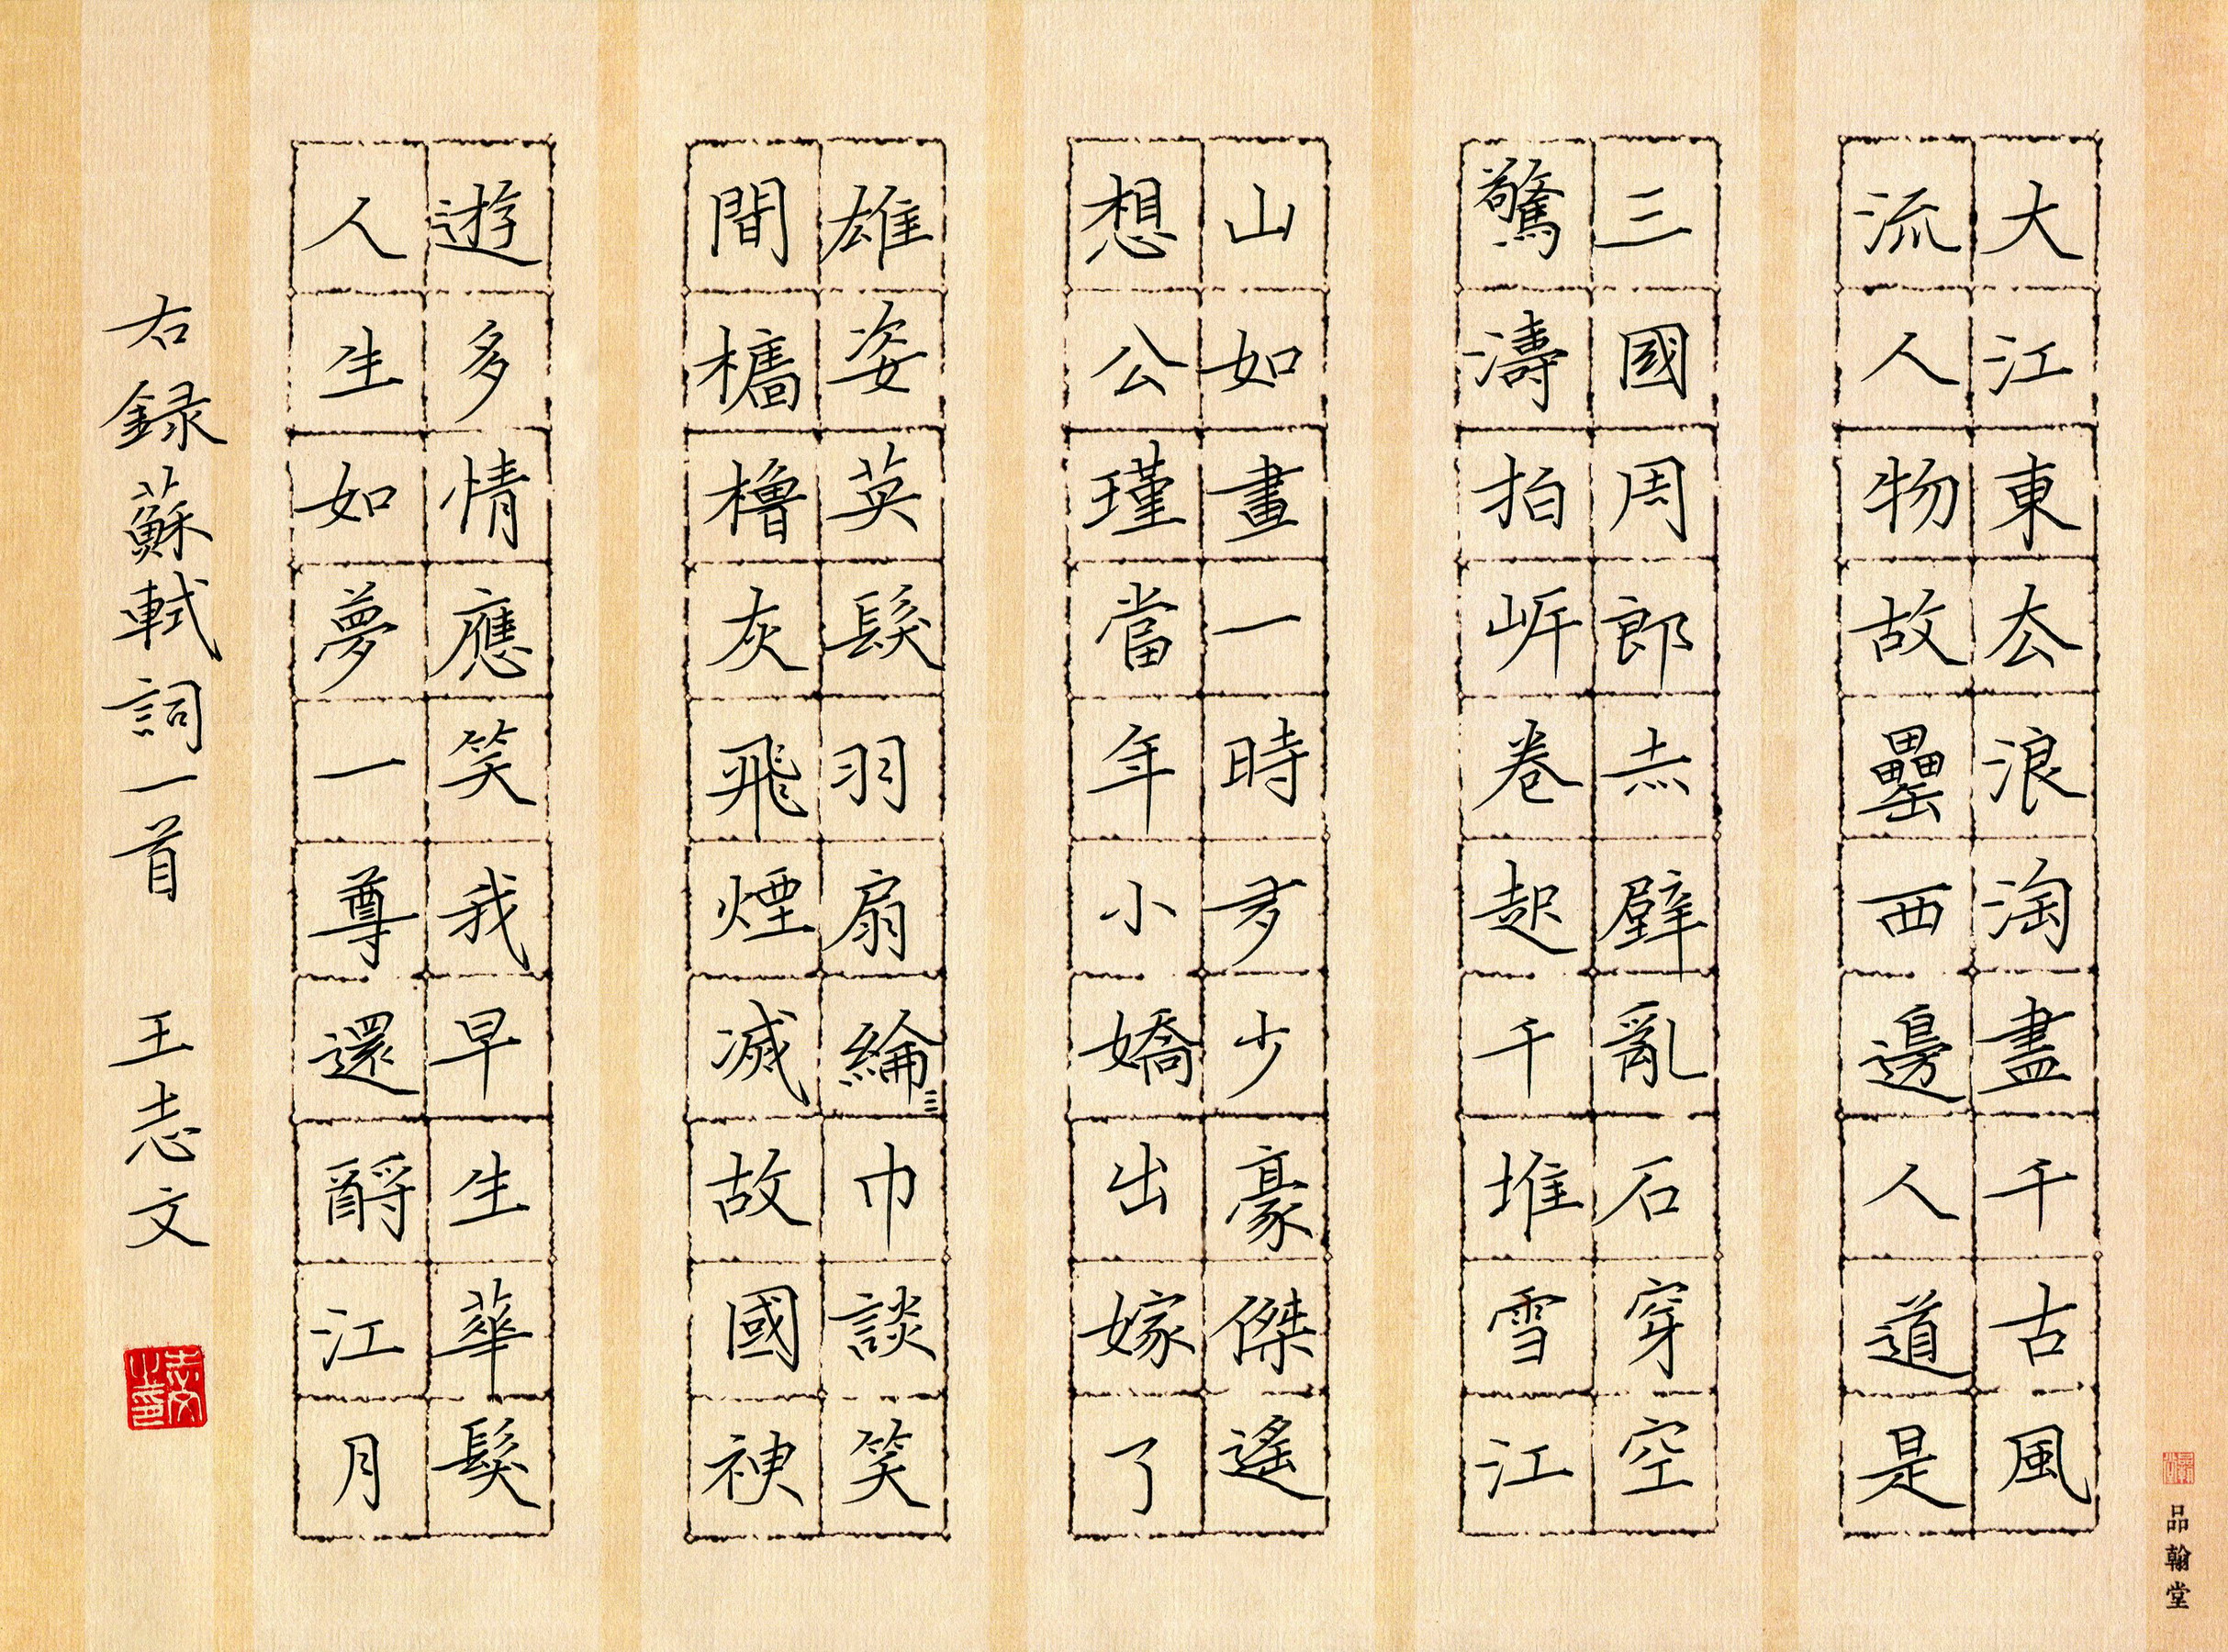 大江東去浪淘盡千古風
流人物故壘西邊人道是
三國周郎赤壁亂石穿空
驚濤拍岸卷起千堆雪江
山如畫一時多少豪傑遙
想公瑾當年小嬌出嫁了
雄姿英髮羽扇綸巾談笑
間檣櫓灰飛煙滅故國神
遊多情應笑我早生華髮
人生如夢一尊還酹江月
右録蘇軾詞一首 王志文
志文之印
品翰堂